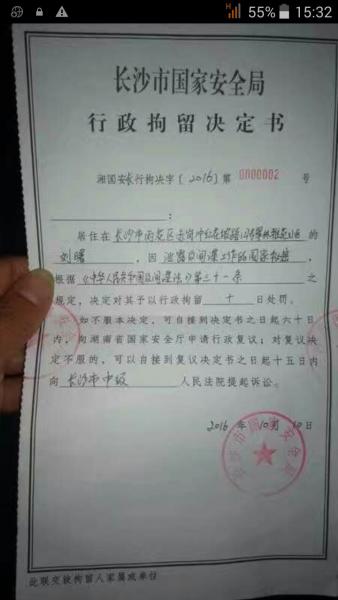 55% 15:32
长沙市国家安全局
行政拘留决定书
湘国安长行拘决字〔2016〕第 0000002 号
:
居住在长沙市雨花区
的
刘曙,因泄露反间谍工作的国家秘密,
根据《中华人民共和国反间谍法》第三十一条之
规定,决定对其予以行政拘留十日处罚。
如不服本决定,可自接到决定书之日起六十日
内,向湖南省国家安全厅申请行政复议;对复议决
定不服的,可以自接到复议决定书之日起十五日内
向长沙市中级人民法院提起诉讼。
2016年10月10日
长沙市国家安全局
此联交被拘留人家属或单位